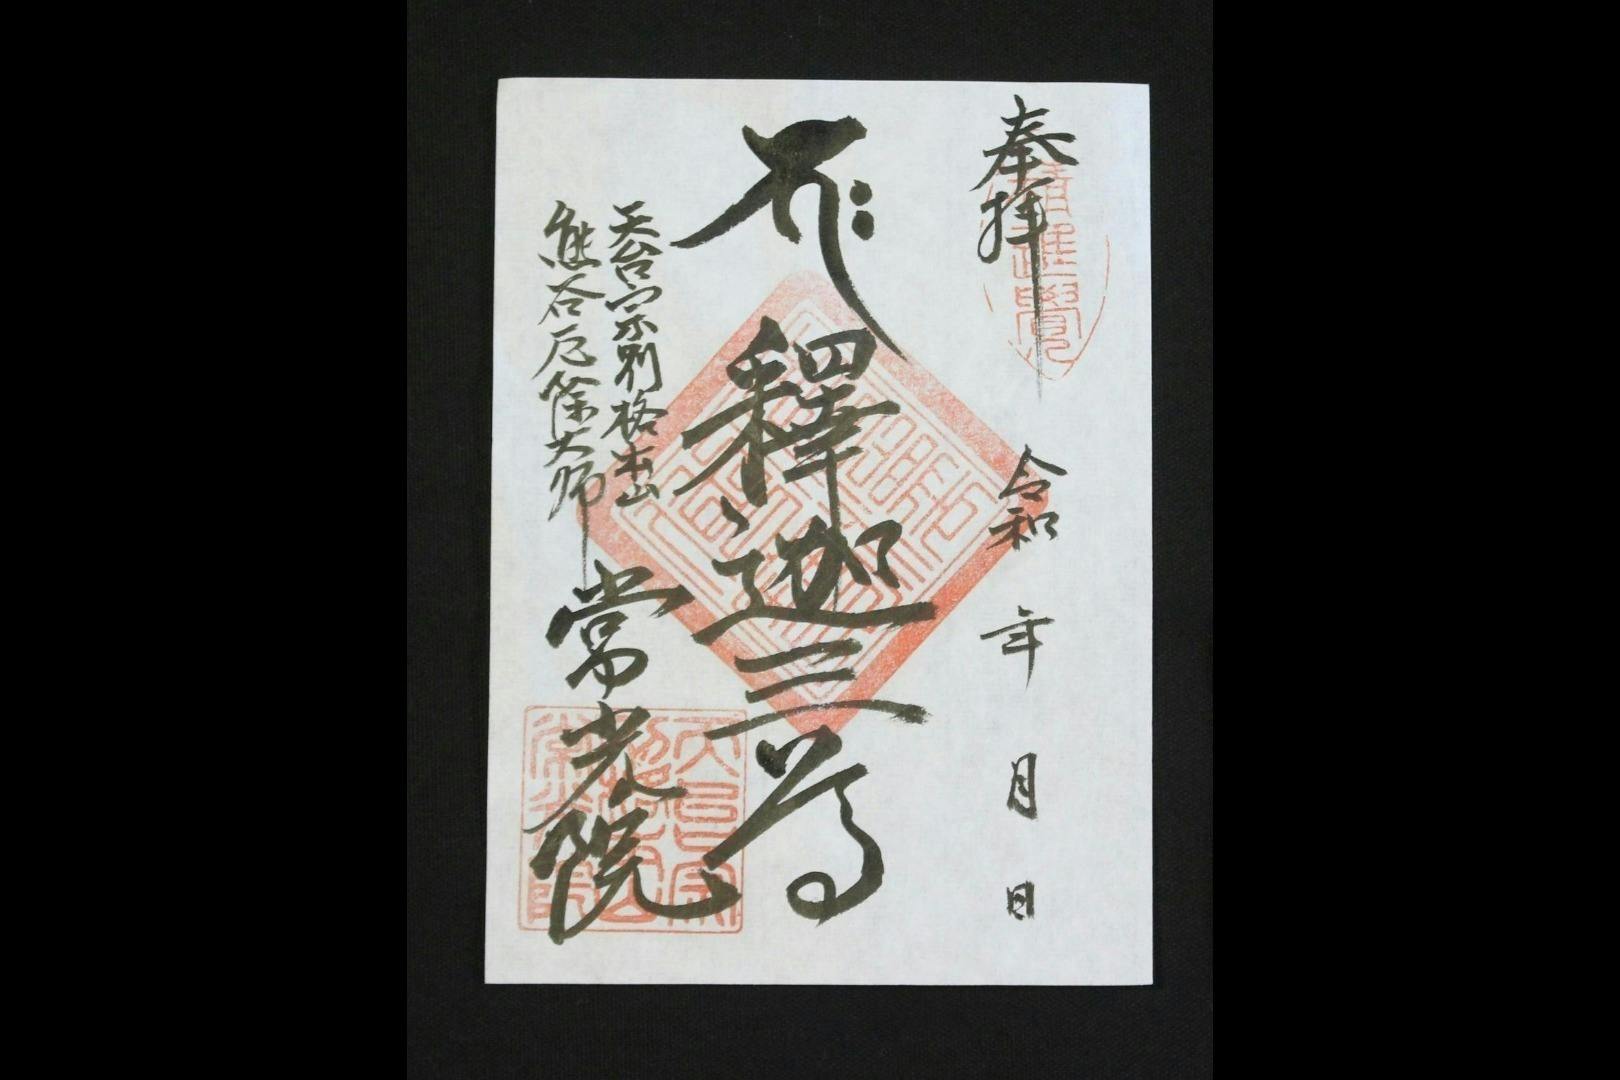 奉拝
令和 年 月 日
釋迦三尊
天台宗別格本山
熊谷厄除大師
常光院